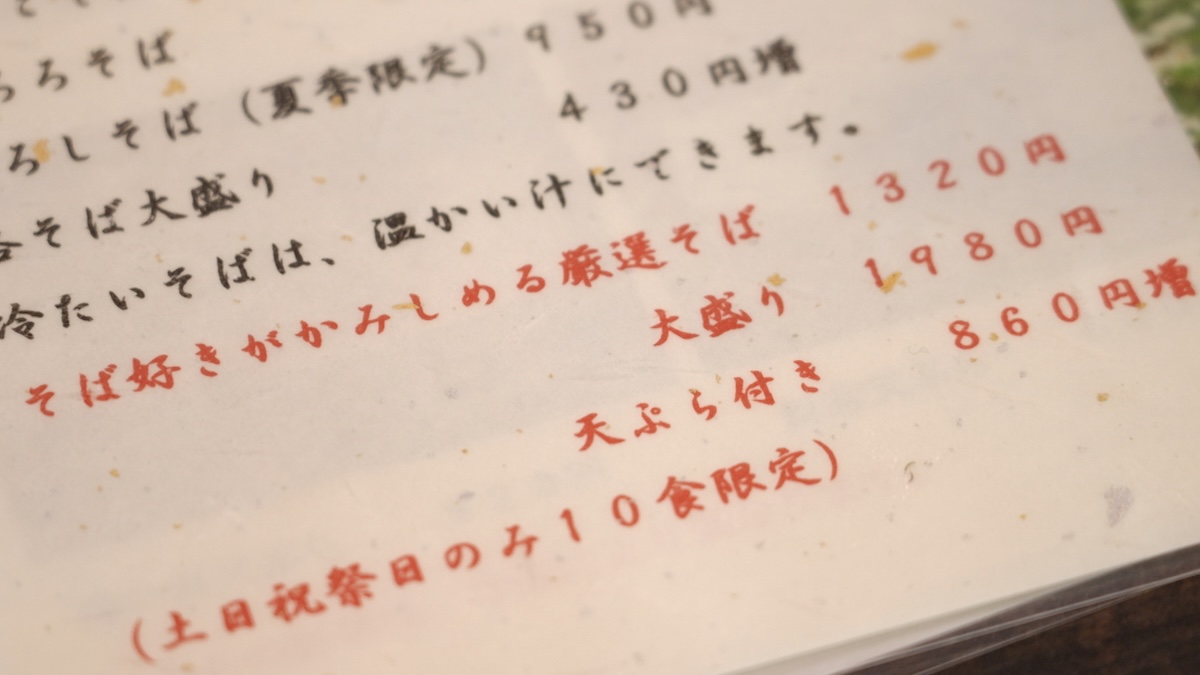 ろそば
ろしそば（夏季限定）９５０円
そば大盛り　４３０円増
冷たいそばは、温かい汁にできます。
そば好きがかみしめる厳選そば　１３２０円
大盛り　１９８０円
天ぷら付き　８６０円増
（土日祝祭日のみ１０食限定）